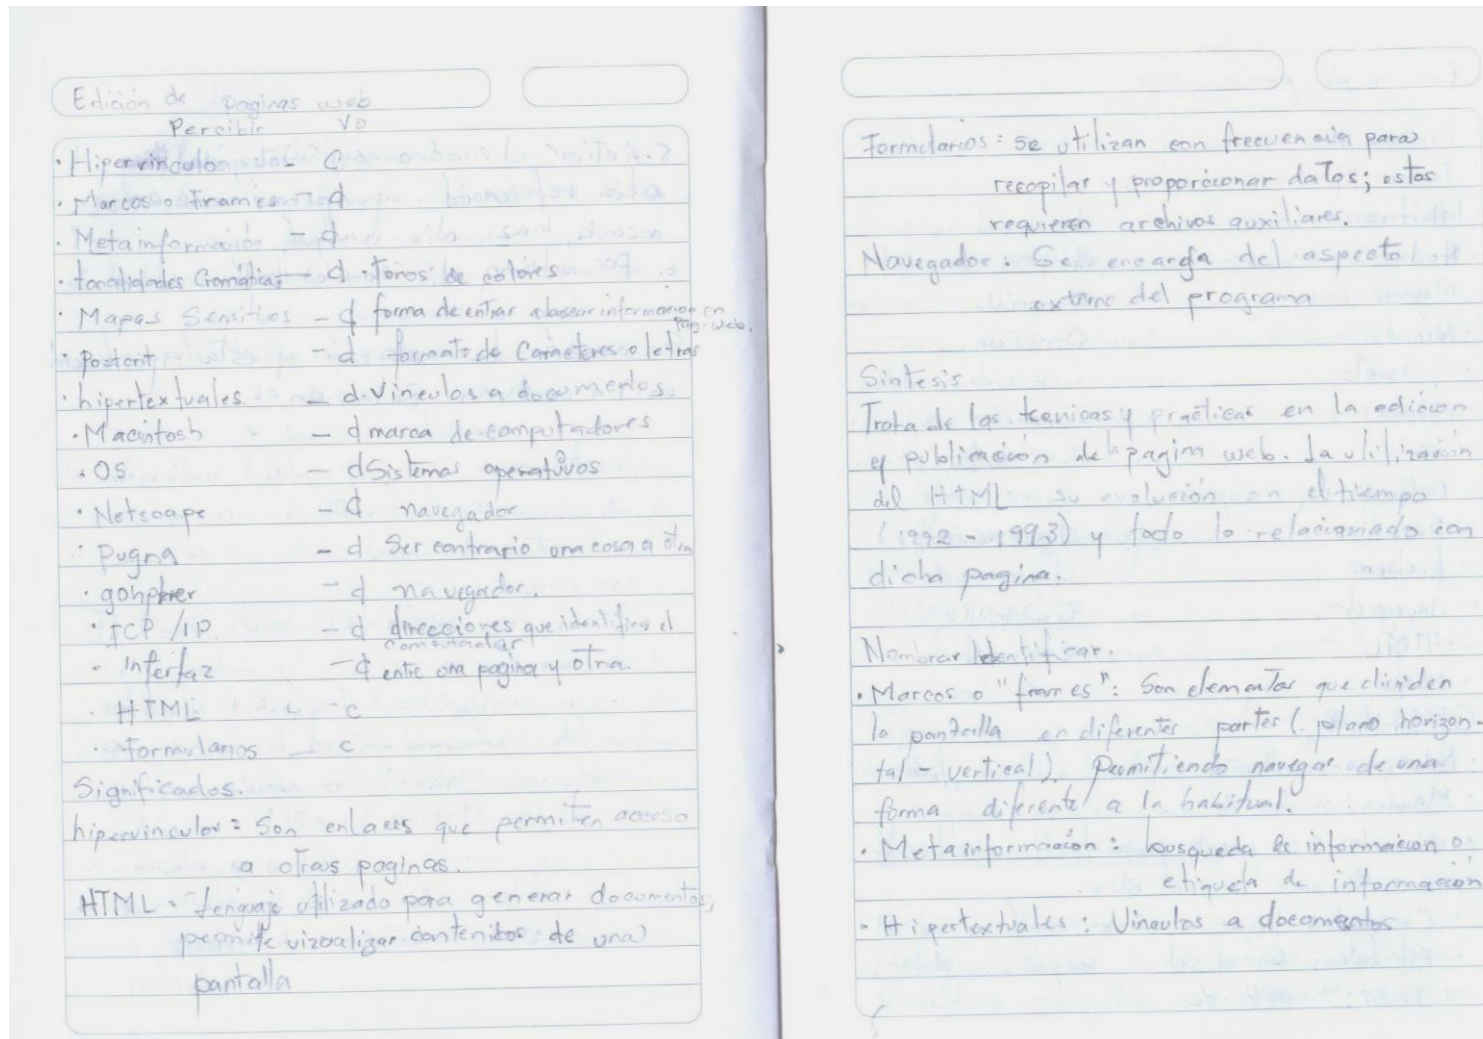 Edición de paginas web
Percibir Vo
· Hipervinculo - c
· Marcos o frames - d
· Metainformación - d
· tonalidades Cromáticas - d · Tonos de colores
· Mapas Sensitivos - d forma de entrar a buscar informacion en
Pag. web.
· Postcrit - d formato de Carateres o letras
· hipertextuales - d · Vinculos a documentos
· Macintosh - d marca de computadores
· OS - d Sistemas operativos
· Netscape - d navegador
· pugna - d Ser contrario una cosa a otra
· gohpher - d navegador.
· TCP/IP - d direcciones que identifica el
computador
· Interfaz - d entre una pagina y otra.
· HTML - c
· Formularios - c
Significados.
hipervinculos = Son enlaces que permiten acceso
a otras paginas.
HTML = Lenguaje utilizado para generar documentos,
permite vizualizar contenidos de una
pantalla
Formularios = se utilizan con frecuencia para
recopilar y proporcionar datos; estos
requieren archivos auxiliares.
Navegador: Se encarga del aspecto
externo del programa
Sintesis
Trata de las tecnicas y practicas en la edicion
y publicación de la pagina web. La utilización
del HTML su evolución en el tiempo
(1992 - 1993) y todo lo relacionado con
dicha pagina.
Nombrar Identificar.
· Marcos o "frames": Son elementos que dividen
la pantalla en diferentes partes (plano horizon-
tal - vertical). Permitiendo navegar de una
forma diferente a la habitual.
· Metainformación: busqueda de informacion o
etiqueta de información
· Hipertextuales: Vinculos a documentos